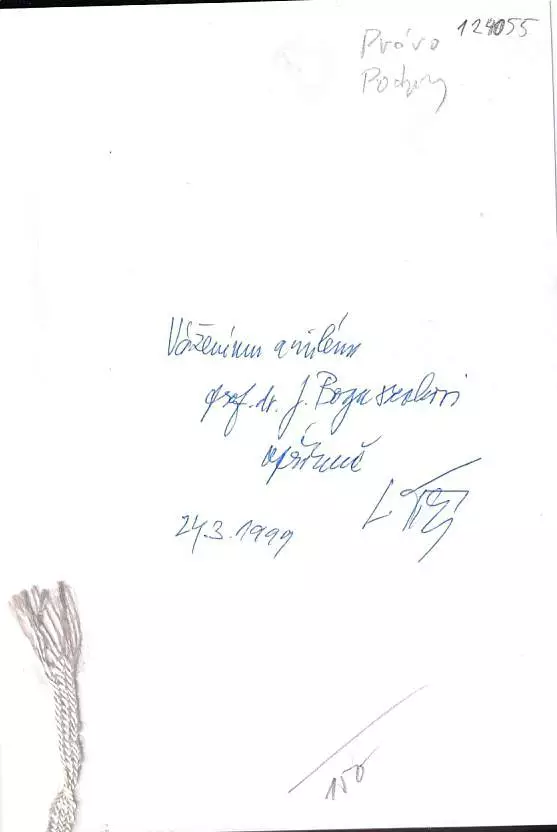 124055
Právo
Váženému a milému
prof. dr. J. Boguszakovi
upřímně
24.3.1999
150